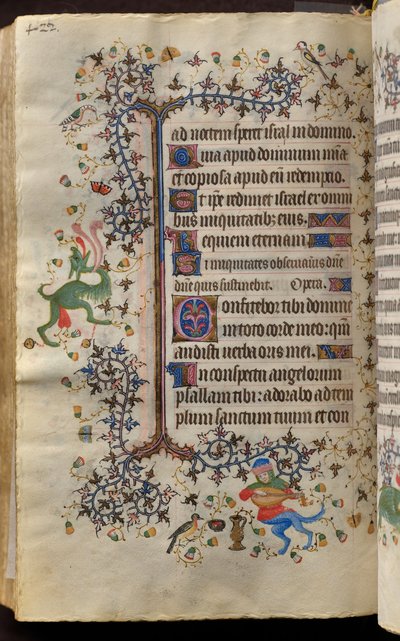 ad noctem speret israel in domino.
Quia apud dominum mia
et copiosa apud eu redempcio.
Et ipse redimet israel ex omni
bus iniquitatibus eius.
Requiem eternam.
Si iniquitates obseruaueris dne
dne quis sustinebit. Opera.
Confitebor tibi domine
in toto corde meo: qm
audisti uerba oris mei.
In conspectu angelorum
psallam tibi: adorabo ad tem
plum sanctum tuum et con